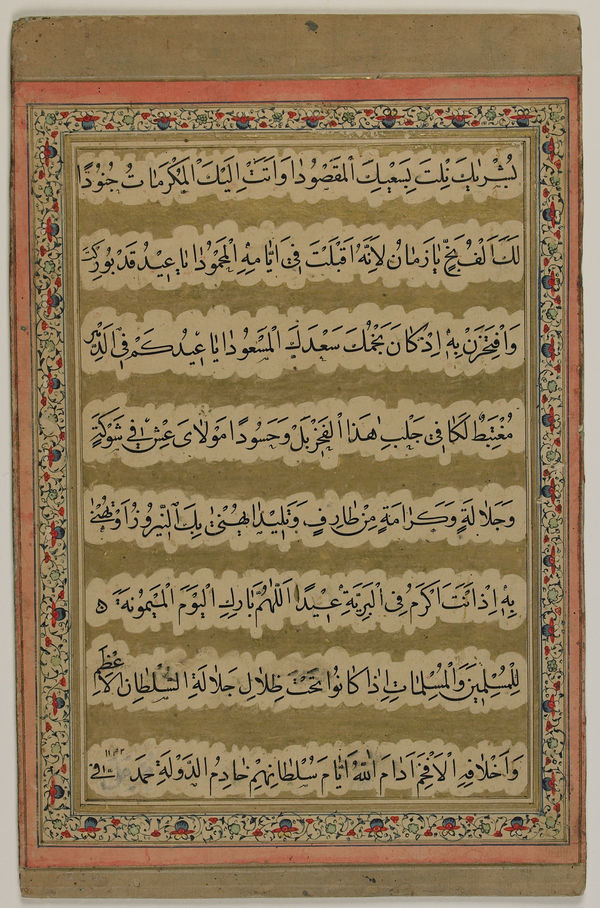 بُشْرٰيكَ نِلْتَ بِسَعْيِكَ الْمَقْصُودٰا وَاَتَتْ اِلَيْكَ الْمَكْرُمٰاتُ جُنُودًا
لَكَ اَلْفُ بَخٍّ يٰا زَمٰانُ لِاَنَّهُ اَقْبَلْتَ فِي اَيّٰامِهِ الْمَحْمُودٰا يٰا عِيدُ قَدْ بُورِكْتَ
وَافْتَخِرَنْ بِهِ اِذْ كٰانَ نَجْمُكَ سَعْدَكَ الْمَسْعُودٰا يٰا عِيدُ كَمْ فِي الدَّهْرِ
مُغْتَبِطٌ لَكٰا فِي جَلْبِ هٰذَا الْفَخْرِ بَلْ وَحَسُودًا مَوْلٰايَ عِشْ فِي شَوْكَةٍ
وَجَلٰالَةٍ وَكَرٰامَةٍ مِنْ طٰارِفٍ وَتَلِيدٰا يُهْنىٰ بِكَ النَّيْرُوزُ اَوْ تُهْنىٰ
بِهِ اِذْ اَنْتَ اَكْرَمُ فِي الْبَرِيَّةِ عِيدًا اَللّٰهُمَّ بٰارِكِ الْيَوْمَ الْمَيْمُونَةَ
لِلْمُسْلِمِينَ وَالْمُسْلِمٰاتِ اِذْ كٰانُوا تَحْتَ ظِلٰالِ جَلٰالَةِ السُّلْطٰانِ الْاَعْظَمِ
وَاَخْلٰافِهِ الْاَفْخَمِ اَدٰامَ اللّٰهُ اَيّٰامَ سُلْطٰانِهِمْ خٰادِمُ الدَّوْلَةِ فِي